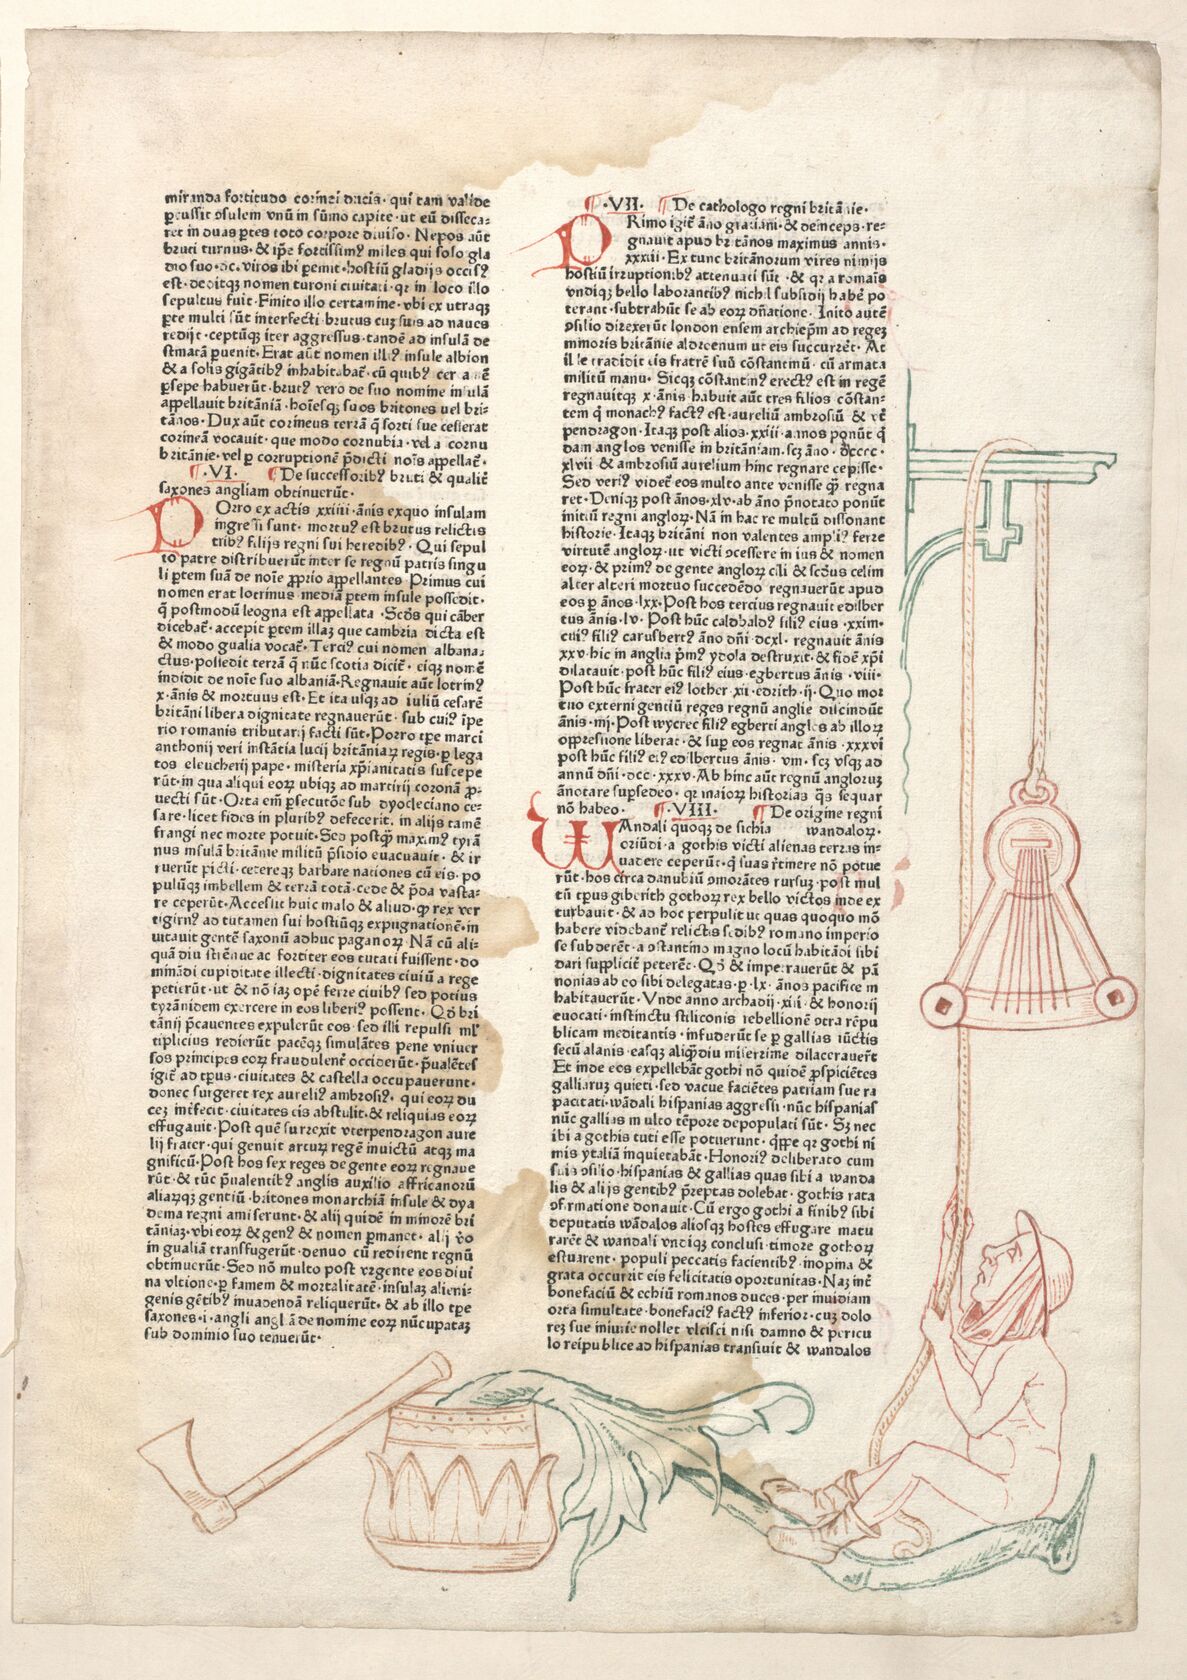 miranda fortitudo corinei ducis· qui tam valide
ꝑcussit ꝯsulem vnū in sūmo capite·ut eū disseca⸗
ret in duas ꝑtes toto corpore diuiso· Nepos aūt
bruti turnus·& ip̄e fortissimꝰ miles qui solo gla
dio suo·dc·viros ibi ꝑemit·hostiū gladijs occisꝰ
est·deditqꝫ nomen turoni ciuitati·qr in loco illo
sepultus fuit·Finito illo certamine·vbi ex utraqꝫ
ꝑte multi sūt interfecti·brutus cuꝫ suis ad naues
redijt·ceptūqꝫ iter aggressus·tandē ad insulā de
stinatā ꝑuenit·Erat aūt nomen illiꝰ insule albion
& a solis gigātibꝰ inhabitabat̄·cū quibꝰ
ꝑsepe habuerūt·brutꝰ vero de suo nomine insulā
appellauit britāniā·hoīesqꝫ suos britones uel bri⸗
tānos·Dux aūt corineus terrā q̄ sorti sue cesserat
corineā vocauit·que modo cornubia·vel a cornu
britānie·vel ꝑ corruptionē p̄dicti noīs appellat̄·
¶·VI· ¶De successoribꝰ bruti & qualit̄
saxones angliam obtinuerūt·
POrro ex actis xxiiii·ānis exquo insulam
ingressi sunt· mortuꝰ est brutus relictis
tribꝰ filijs regni sui heredibꝰ· Qui sepul
to patre distribuerūt inter se regnū patris singu
li ꝑtem suā de noīe ꝓprio appellantes· Primus cui
nomen erat locrinus·mediā ꝑtem insule possedit·
q̄ postmodū leogna est appellata·Scd̄s qui cāber
dicebat̄·accepit ꝑtem illaꝫ que cambria dicta est
& modo gualia vocat̄·Terciꝰ cui nomen albana⸗
ctus·possedit terrā q̄ nūc scotia dicit̄·eiqꝫ nomē
indidit de noīe suo albaniā·Regnauit aūt lotrinꝰ
x·ānis & mortuus est·Et ita usqꝫ ad iuliū cesarē
britāni libera dignitate regnauerūt·sub cuiꝰ īpe
rio romanis tributarij facti sūt·Porro tꝑe marci
anthonij veri instātia lucij britāniaꝝ regis·ꝑ lega
tos eleutherij pape·misteria xp̄ianitatis suscepe
rūt·in qua aliqui eoꝝ ubiqꝫ ad martirij coronā ꝓ⸗
uecti sūt·Orta em̄ ꝑsecutōe sub dyocleciano ce⸗
sare·licet fides in pluribꝰ defecerit·in alijs tamē
frangi nec morte potuit·Sed postq̄ꝫ maximꝰ tyrā
nus insulā britānie militū p̄sidio euacuauit·& ir
ruerūt picti·ceterеqꝫ barbare nationes cū eis·po
pulūqꝫ imbellem & terrā totā·cede & p̄da vasta⸗
re ceperūt·Accessit huic malo & aliud·ꝙ rex ver
tigirnꝰ ad tutamen sui hostiūqꝫ expugnationē·in
uitauit gentē saxonū adhuc paganoꝝ·Nā cū ali⸗
quā diu strēnue ac fortiter eos tutati fuissent·do
minādi cupiditate illecti·dignitates ciuiū a rege
petierūt·ut & nō iaꝫ opē ferre ciuibꝰ sed potius
tyrānidem exercere in eos liberiꝰ possent· Qd̄ bri
tānij p̄cauentes expulerūt eos·sed illi repulsi ml̄
tiplicius redierūt pacēqꝫ simulātes pene vniuer
sos principes eoꝝ fraudulent̄ occiderūt·p̄ualētes
igit̄ ad tꝑus·ciuitates & castella occupauerunt·
donec surgeret rex aureliꝰ ambrosiꝰ· qui eoꝝ du
ceꝫ int̄fecit·ciuitates eis abstulit·& reliquias eoꝝ
effugauit·Post quē surrexit vterpendragon aure
lij frater·qui genuit arturꝫ regē inuictū atqꝫ ma
gnificū·Post hos sex reges de gente eoꝝ regnaue
rūt·& tūc p̄ualentibꝰ anglis auxilio affricanorū
aliaꝝqꝫ gentiū·britones monarchiā insule & dya
dema regni amiserunt·& alij quidē in minorē bri
tāniaꝫ·vbi eoꝝ & genꝰ & nomen ꝑmanet· alij vo
in gualiā transfugerūt·denuo cū redirent regnū
obtinuerūt·Sed nō multo post vrgente eos diui
na vltione·ꝑ famem & mortalitatē·insulaꝫ alieni⸗
genis gētibꝰ inuadendā reliquerūt·& ab illo tꝑe
saxones·i·angli anglā de nomine eoꝝ nūcupataꝫ
sub dominio suo tenuerūt·
¶·VII· ¶De cathologo regni britānie·
PRimo igit̄ āno graciani·& deinceps·re⸗
gnauit apud britānos maximus annis·
xxxiii·Ex tunc britānorum vires nimijs
hostiū irruptionibꝰ attenuati sūt·& qr a romāis
vndiqꝫ bello laborantibꝰ nichil subsidij habē po
terant·subtrahūt se ab eoꝝ dn̄atione·Inito autē
ꝯsilio direxerūt london ensem archiep̄m ad regeꝫ
minoris britānie aldroenum ut eis succurrēt· At
ille tradidit eis fratrē suū cōstantinū· cū armata
militū manu· Sicqꝫ cōstantinꝰ erectꝰ est in regē
regnauitqꝫ x·ānis·habuit aūt tres filios cōstan⸗
tem q̄ monachꝰ factꝰ est·aureliū ambrosiū & vt̄
pendragon·Itaqꝫ post alios·xxiii·annos ponūt q̄
dam anglos venisse in britāniam·scꝫ āno·dcccc·
xlvii·& ambrosiū aurelium hinc regnare cepisse·
Sed veriꝰ videt̄ eos multo ante venisse q̄ regna
ret·Deniqꝫ post ānos·xlv·ab āno p̄notato ponūt
initiū regni angloꝝ·Nā in hac re multū dissonant
historie·Itaqꝫ britāni non valentes ampliꝰ ferre
virtutē angloꝝ·ut victi ꝯcessere in ius & nomen
eoꝝ·& primꝰ de gente angloꝝ cili & scd̄us celim
alter alteri mortuo succedēdo regnauerūt apud
eos ꝑ ānos·lxx·Post hos tercius regnauit edilber
tus ānis·lv·Post hūc caldbaldꝰ filiꝰ eius·xxim·
cuiꝰ filiꝰ carusbertꝰ āno dn̄i dcxl· regnauit ānis
xxv·hic in anglia p̄mꝰ ydola destruxit·& fidē xp̄i
dilatauit·post hūc filiꝰ eius·egbertus ānis·viii·
Post hūc frater eiꝰ lother·xii·edrith·ij·Quo mor
tuo externi gentiū reges regnū anglie discindūt
ānis·mj·Post wycrec filiꝰ egberti anglos ab illoꝝ
oppressione liberat·& suꝑ eos regnat ānis·xxxvi
post hūc filiꝰ eiꝰ edilbertus ānis·viii·scꝫ vsqꝫ ad
annū dn̄i·dcc·xxxv·Ab hinc aūt regnū angloruꝫ
ānotare suꝑsedeo· qr maioꝝ historias q̄s sequar
nō habeo· ¶·VIII· ¶De origine regni
WAndali quoqꝫ de sichia wandaloꝝ·
oriūdi·a gothis victi alienas terras in⸗
uadere ceperūt·q̄ suas r̄timere nō potue
rūt·hos circa danubiū ꝯmorātes rursuꝫ·post mul
tū tꝑus giberith gothoꝝ rex bello victos inde ex
turbauit·& ad hoc ꝑpulit ut quas quoquo mō
habere videbant̄ relictis sedibꝰ romano imperio
se subderēt·a ꝯstantino magno locū habitādi sibi
dari supplicit̄ peterēt· Qd̄ & imperauerūt & pā
nonias ab eo sibi delegatas·ꝑ·lx·ānos pacifice in
habitauerūt·Vnde anno archadij·xiii·& honorij
euocati·instinctu stiliconis rebellionē ꝯtra rēpu
blicam meditantis·infuderūt se ꝑ gallias iūctis
secū alanis·easqꝫ aliq̄diu miserrime dilacerauerūt
Et inde eos expellebāt gothi nō quidē ꝓspiciētes
galliaruꝫ quieti·sed vacue faciētes patriam sue ra
pacitati·wādali hispanias aggressi·nūc hispanias
nūc gallias multo tēpore depopulati sūt· Sꝫ nec
ibi a gothis tuti esse potuerunt· q̄ppe qr gothi ni
mis ytaliā inquietabāt·Honoriꝰ deliberato cum
suis ꝯsilio·hispanias & gallias quas sibi a wanda
lis & alijs gentibꝰ p̄reptas dolebat· gothis rata
ꝯfirmatione donauit·Cū ergo gothi a finibꝰ sibi
deputatis wādalos aliosqꝫ hostes effugare matu
rarēt & wandali vndiqꝫ conclusi timore gothoꝝ
estuarent·populi peccatis facientibꝰ·inopina &
grata occurrit eis felicitatis oportunitas·Naꝫ int̄
bonefaciū & echiū romanos duces·per inuidiam
orta simultate·bonefaciꝰ factꝰ inferior·cuꝫ dolo
reꝫ sue iniurie nollet vlcisci nisi damno & pericu
lo reipublice·ad hispanias transiuit & wandalos